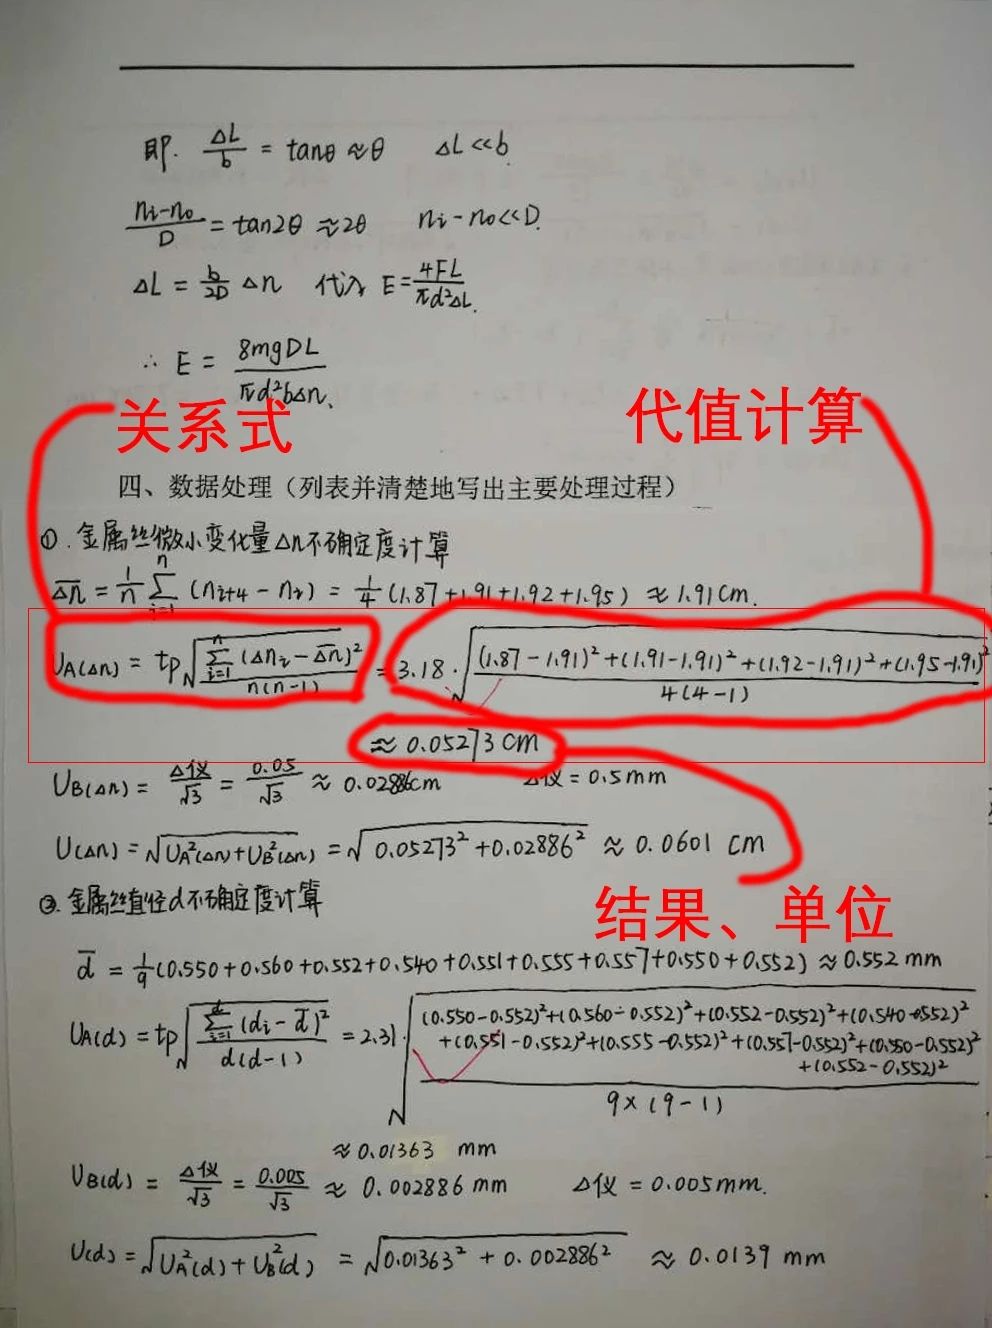 即. ΔL/b = tanθ ≈ θ ΔL << b.
(ni-n0)/D = tan2θ ≈ 2θ ni-n0 << D.
ΔL = b/2D Δn 代入 E = 4FL/πd²ΔL.
∴ E = 8mgDL/πd²bΔn.
关系式 代值计算
四、数据处理（列表并清楚地写出主要处理过程）
①.金属丝微小变化量Δn不确定度计算
Δn̅ = 1/n Σ(i=1→n) (ni+4 - ni) = 1/4 (1.87+1.91+1.92+1.95) ≈ 1.91cm.
UA(Δn) = tp√(Σ(i=1→n) (Δni-Δn̅)²/n(n-1)) = 3.18·√(((1.87-1.91)²+(1.91-1.91)²+(1.92-1.91)²+(1.95-1.91)²)/4(4-1))
≈ 0.05273 cm
UB(Δn) = Δ仪/√3 = 0.05/√3 ≈ 0.02886cm Δ仪 = 0.5mm
U(Δn) = √(UA²(Δn)+UB²(Δn)) = √(0.05273²+0.02886²) ≈ 0.0601 cm
结果、单位
②.金属丝直径d不确定度计算
d̅ = 1/9(0.550+0.560+0.552+0.540+0.551+0.555+0.557+0.550+0.552) ≈ 0.552 mm
UA(d) = tp√(Σ(i=1→d) (di-d̅)²/d(d-1)) = 2.31·√(((0.550-0.552)²+(0.560-0.552)²+(0.552-0.552)²+(0.540-0.552)²
+(0.551-0.552)²+(0.555-0.552)²+(0.557-0.552)²+(0.550-0.552)²
+(0.552-0.552)²)/9×(9-1))
≈ 0.01363 mm
UB(d) = Δ仪/√3 = 0.005/√3 ≈ 0.002886 mm Δ仪 = 0.005mm.
U(d) = √(UA²(d)+UB²(d)) = √(0.01363²+0.002886²) ≈ 0.0139 mm